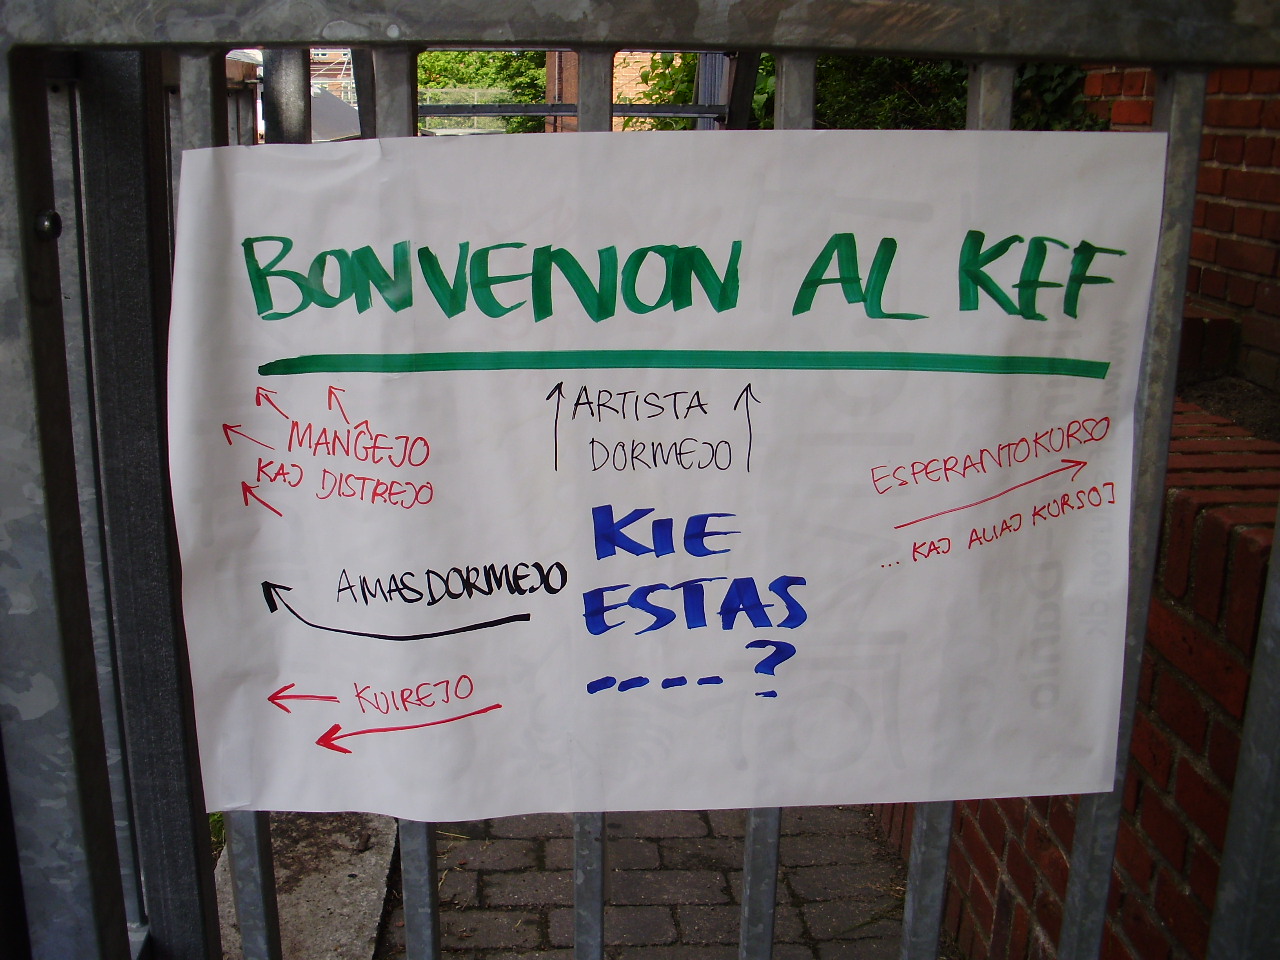 BONVENON AL KEF
MANĜEJO
KAJ DISTREJO
ARTISTA
DORMEJO
ESPERANTOKURSO
... KAJ ALIAJ KURSOJ
AMASDORMEJO
KIE
ESTAS
_ _ _ _ ?
KUIREJO